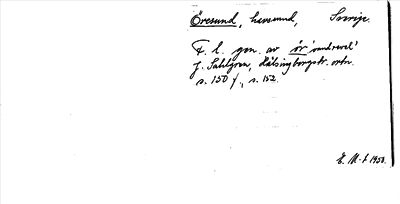 Öresund, havssund, Sverige.
F. l. gen. av ör 'sandrevel'
J. Sahlgren, Hälsingborgstr. ortn.
s. 150 f., s. 152.
E. M-t 1958.